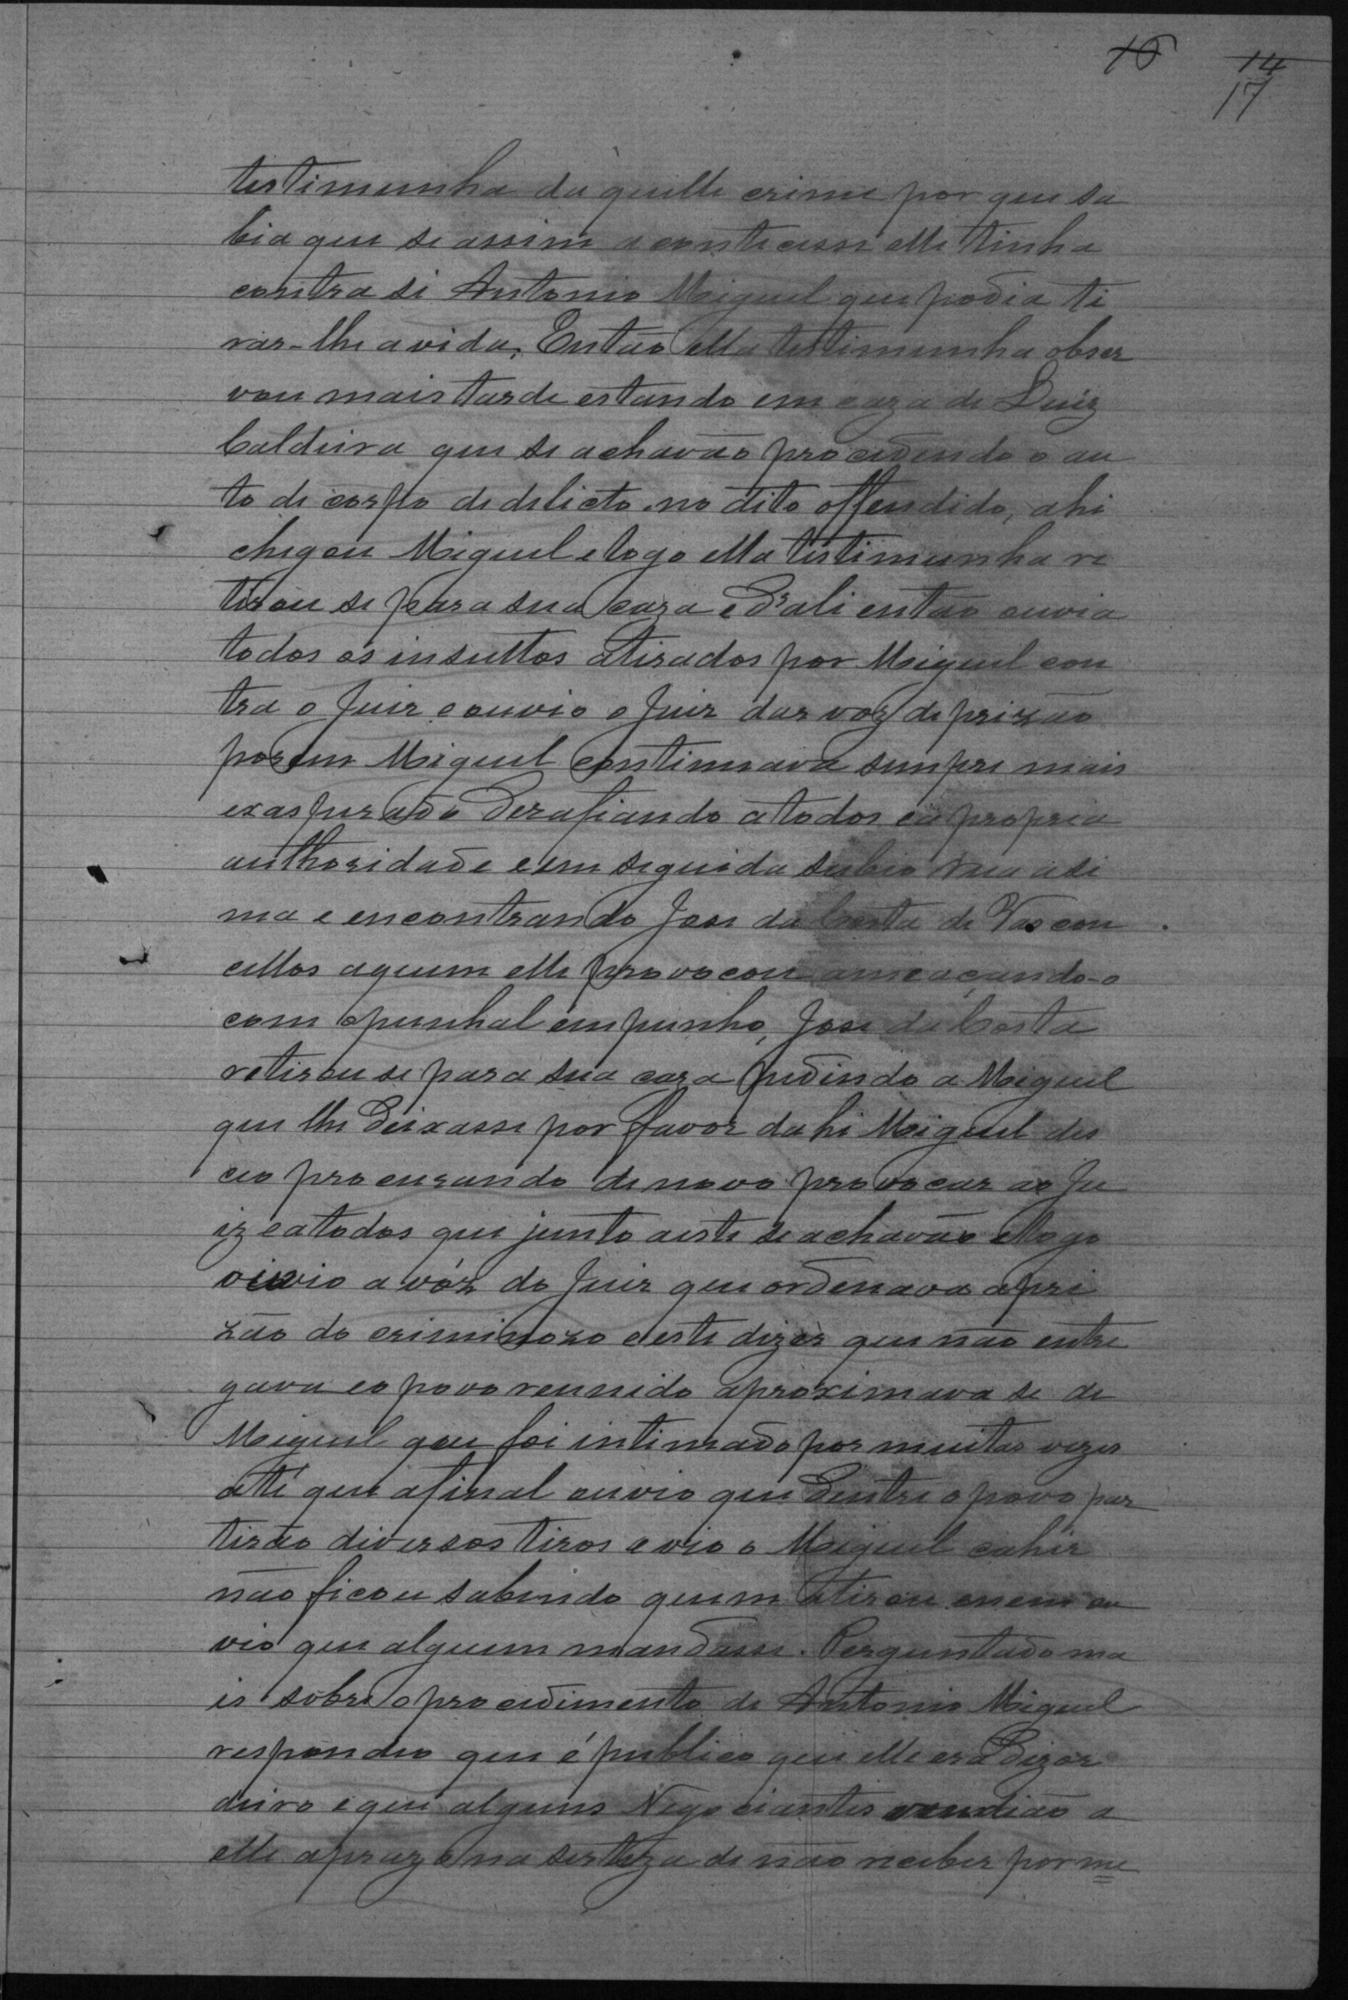 16 14
17
testimunha daquelle crime por que sa
bia que se assim acontecesse elle tinha
contra si Antonio Miguel que podia ti
rar-lhe a vida, Então ella testimunha obser
vou mais tarde estando em caza de Luiz
Caldeira que se achavão procedendo o au
to de corpo de delicto no dito offendido, ahi
chegou Miguel e logo ella testimunha re
tirou se para sua caza e d'ali então ouvia
todos os insultos atirados por Miguel con
tra o Juiz e ouvio o Juiz dar voz de prizão
porem Miguel continuava sempre mais
exasperado dezafiando a todos e a propria
authoridade e em seguida subio rua asi
ma e encontrando Jose da Costa de Vascon
cellos aquem elle provocou ameaçando-o
com opunhal em punho, Jose da Costa
retirou se para sua caza pedindo a Miguel
que lhe deixasse por favor dahi Miguel des
ceo procurando denovo provocar ao Ju
iz e atodos que junto aeste se achavão e logo
ouvio a vóz do Juiz que ordenava a pri
zão do criminozo e este dizer que não entre
gava e o povo reunido aproximava se de
Miguel que foi intimado por muitas vezes
até que afinal ouvio que dentre o povo par
tirão diversos tiros e vio o Miguel cahir
não ficou sabendo quem atirou e nem ou
vio que alguem mandasse. Perguntado ma
is sobre o procedimento de Antonio Miguel
respondeo que é publico que elle era dezor
deiro e que alguns Negociantes vendião a
elle a prazo na serteza de não receber por me